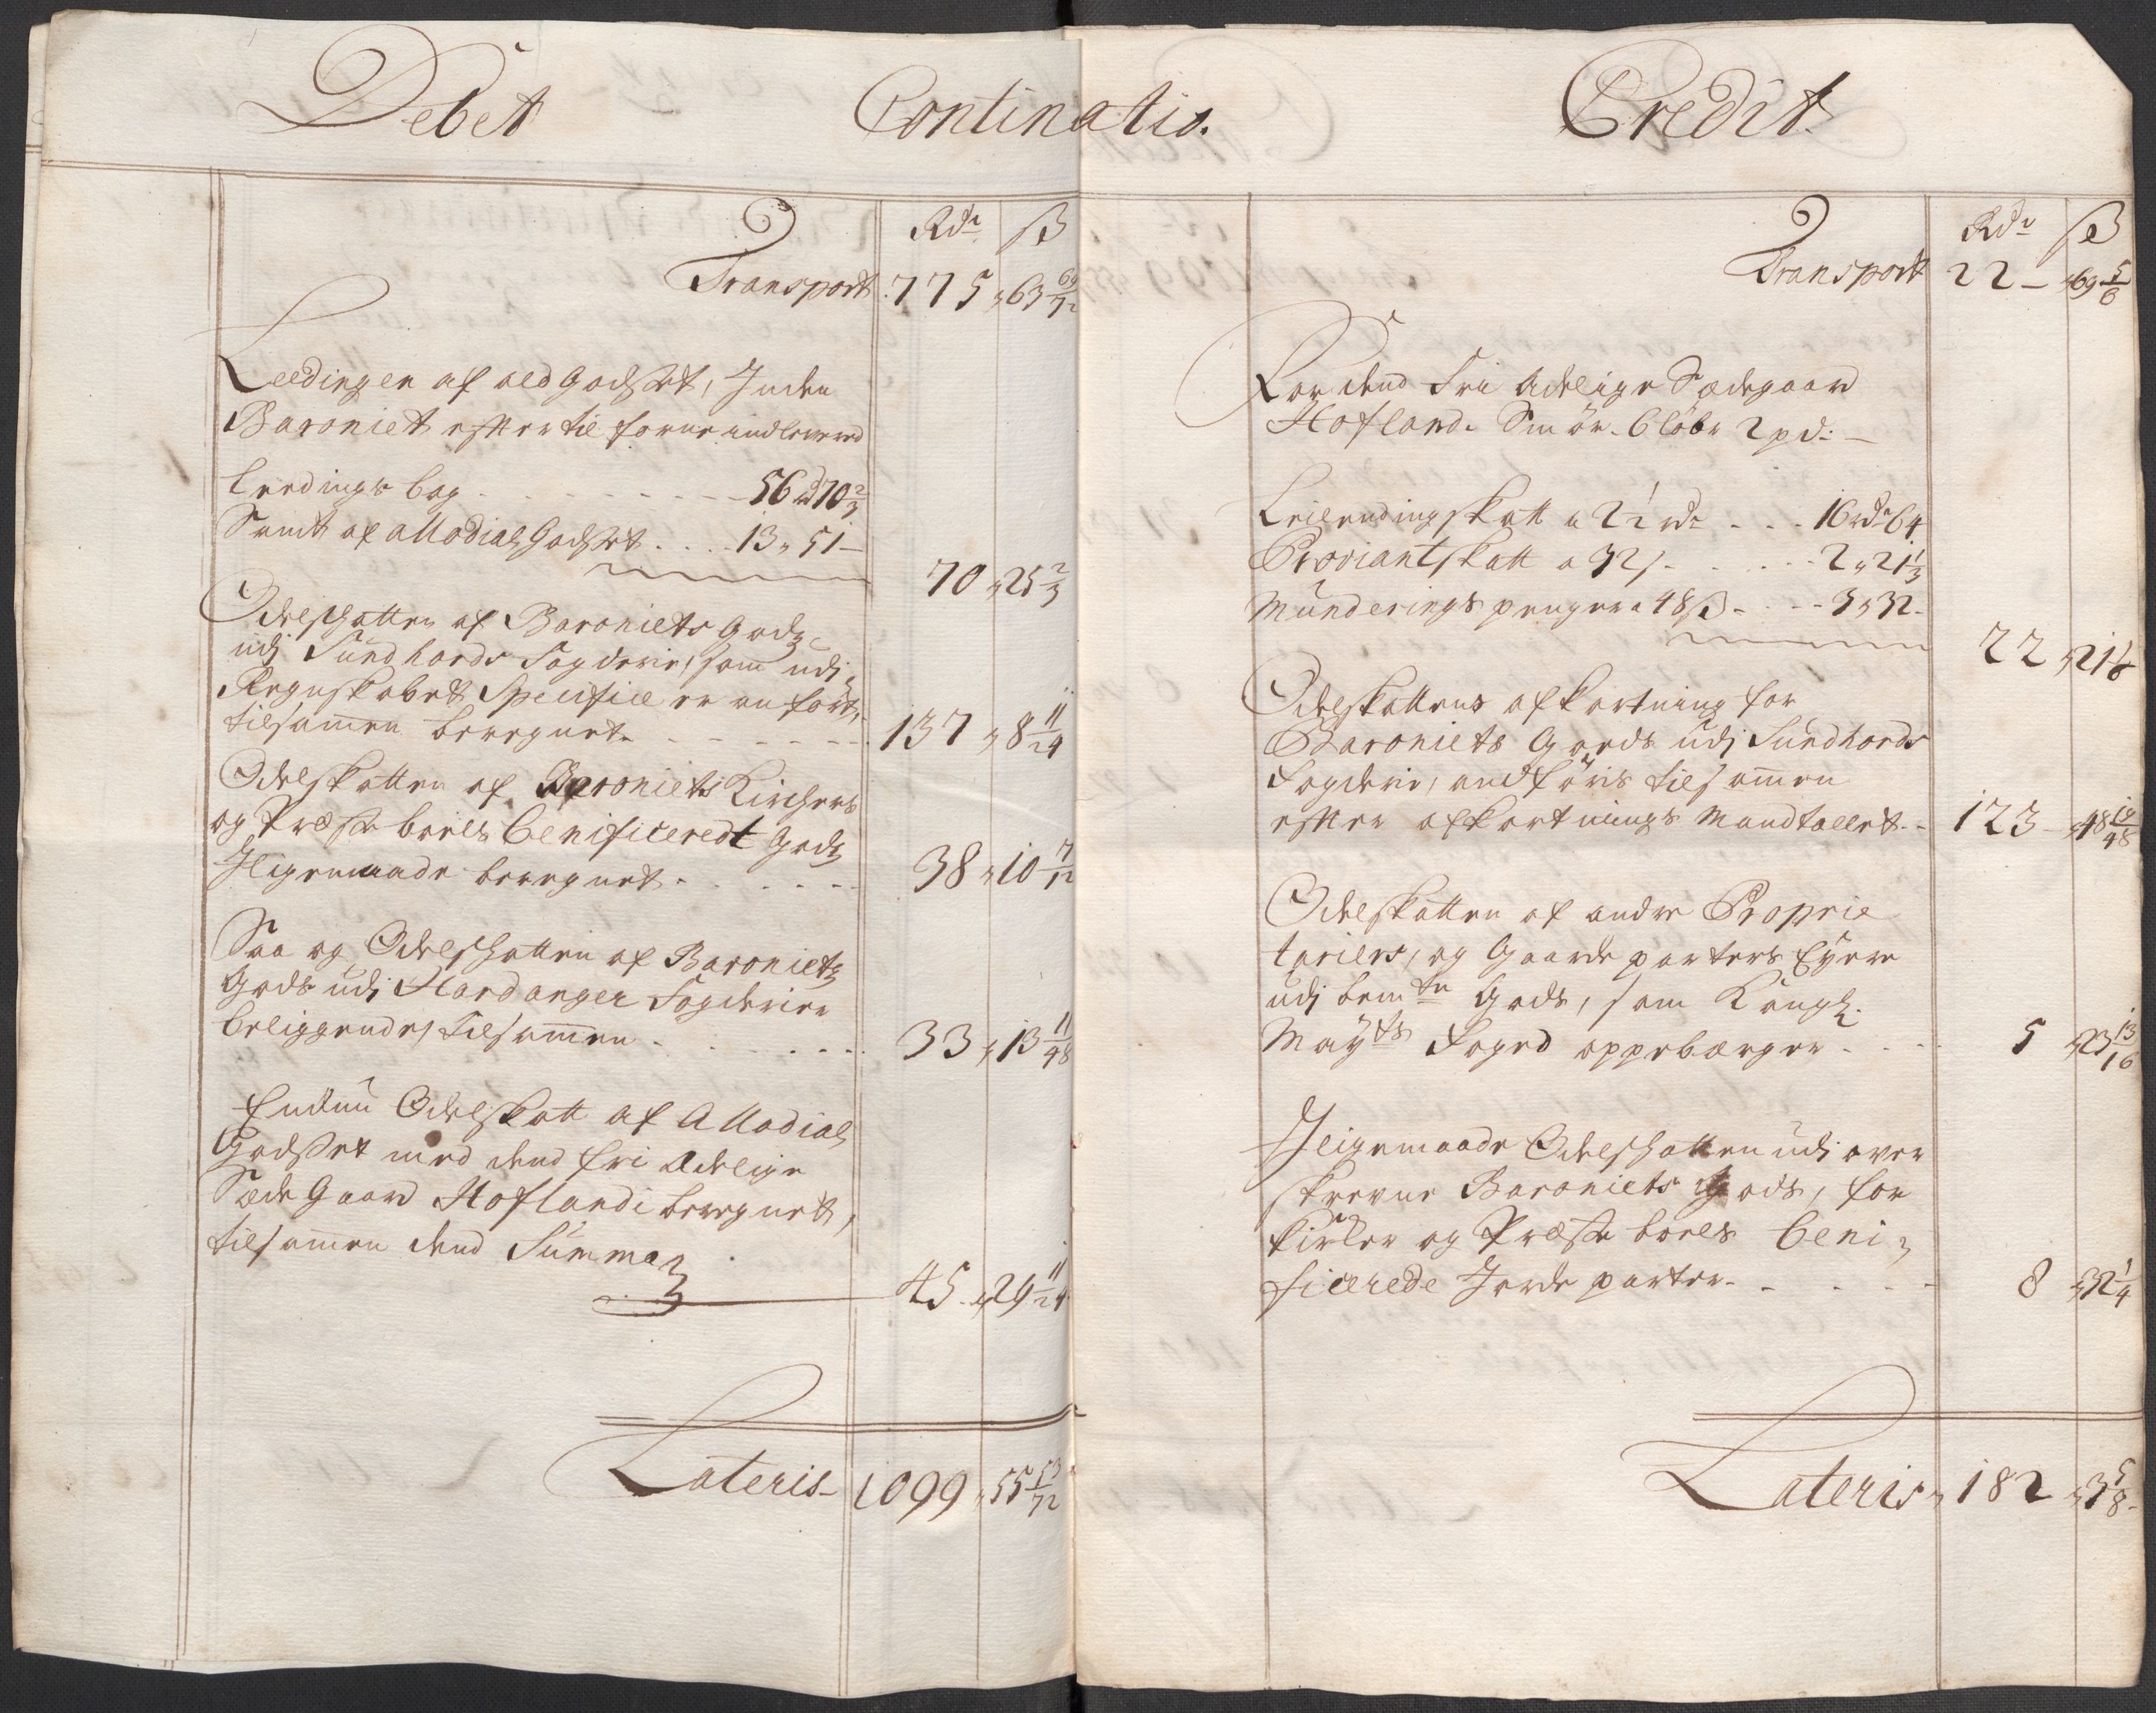 Debet Continatio. Credit
Rdr ß
Transport 775 „ 63 69/72
Leedingen af ald Godset, Inden
Baroniet efter til forne indleveret
Leedings bog - - - 56 rd 70 2/3
Samt af allodial Godset . . . . 13 „ 51 —
70 „ 25 2/3
Odelschatten af Baroniets Gods
udj Sundhords Fogderie, som udj
Regnskabet Specifice er anført,
tilsammen beregnet - - - 137 „ 8 11/24
Odelskatten af Baroniets Kirchers
og Præste boels benificeredt Gods
Jligemaade beregnet - - - 38 „ 10 7/12
Saa og Odelschatten af Baroniets
Gods udj Hardanger Fogderie
beliggendes, tilsammen - - - 33 „ 13 11/48
Endnu Odelskatt af Allodial
Godset med dend fri Adelige
Sæde Gaard Hoflandi beregnet,
tilsammen dend Summa
45 „ 29 11/24
Lateris 1099 „ 55 53/72
Rdr ß
Transport 22 — „ 69 5/6
For dend Fri Adelige Sædegaard
Hofland. Smör. 6 löber 2 pd: —
Leilendingskatt a 2 1/2 rdr - - - 16 rdr 64
Proviantskatt a 32 ß - - - 2 „ 21 1/3
Munderings penger a 48 ß - - - 3 „ 32 -
22 „ 21 1/3
Odelskattens afkortning for
Baroniets Goeds udj Sundhords
Fogderie, andföris tilsammen
efter afkortnings Mandtallet - - 123 - „ 48 19/48
Odelskatten af andre Proprie
tariers, og Gaarde parters Eyere
udj bemte Gods, som Kongl:
Mayts Foged oppebærger - - - 5 „ 23 13/16
Jligemaade Odelschatten udj over
skrevne Baroniets Gods, for
Kirker og Præste boels beni
ficerede Jorde parter - - - 8 „ 32 1/4
Lateris „ 182 „ 3 5/8 -